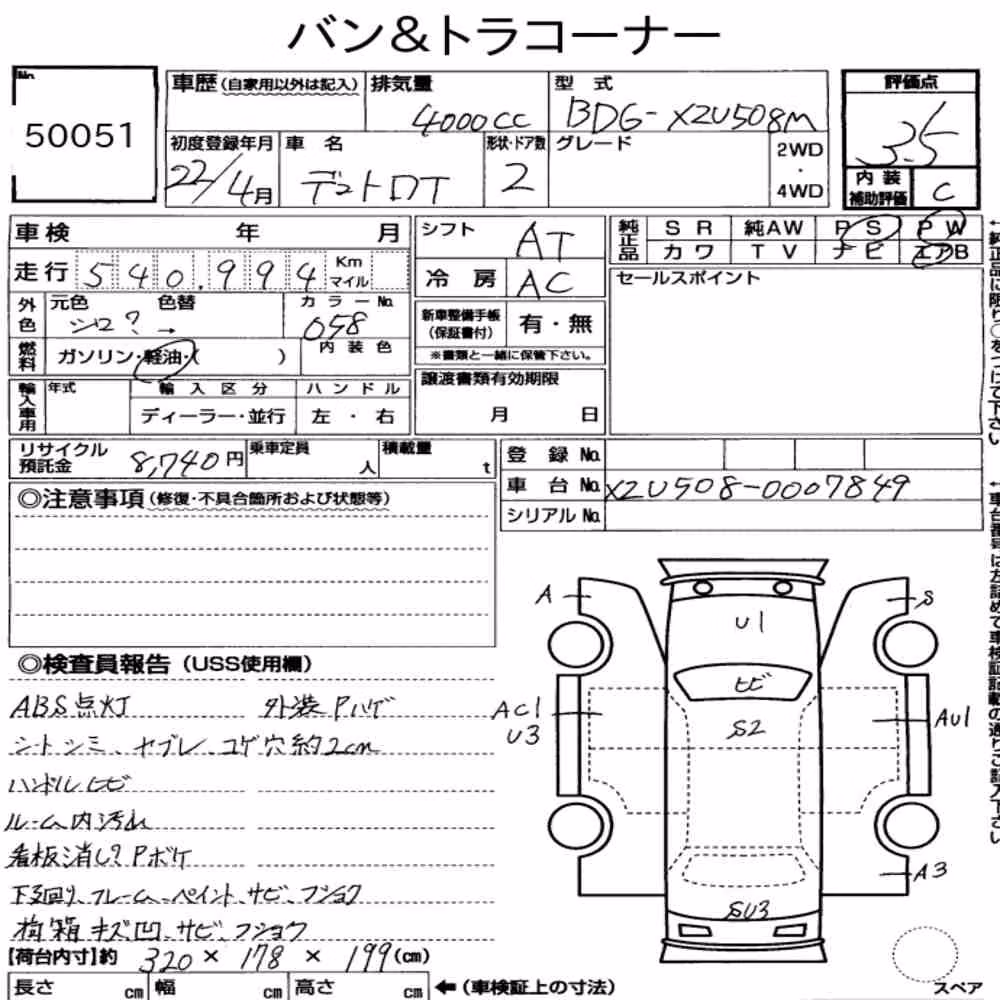 バン&トラコーナー
No.
50051
車歴 (自家用以外は記入) 排気量 4000cc 型式 BDG-XZU508M
評価点 3.5
初度登録年月 22/4月 車名 デュトロDT 形状・ドア数 2 グレード 2WD・4WD
内装補助評価 C
車検 年 月
シフト AT
純正品 SR 純AW PS PW
カワ TV ナビ エアB
走行 540,994 Km マイル
冷房 AC
セールスポイント
外色 元色 シロ? → 色替 カラーNo. 058
新車整備手帳(保証書付) 有・無
燃料 ガソリン・軽油・( ) 内装色
※書類と一緒に保管下さい。
輸入車用 年式 輸入区分 ハンドル
ディーラー・並行 左・右
譲渡書類有効期限
月 日
リサイクル預託金 8,740円 乗車定員 人 積載量 t
登録No.
車台No. XZU508-0007849
シリアルNo.
◎注意事項 (修復・不具合箇所および状態等)
◎検査員報告 (USS使用欄)
ABS点灯 外装Pハゲ
シートシミ、ヤブレ、コゲ穴約2cm
ハンドルヒビ
ルーム内汚れ
看板消し?Pボケ
下廻り、フレーム、ペイント、サビ、フショク
荷箱キズ凹、サビ、フショク
【荷台内寸】約 320 × 178 × 199 (cm)
長さ cm 幅 cm 高さ cm ←(車検証上の寸法)
A
S
U1
ヒビ
AC1
U3
S2
AU1
A3
SU3
スペア
←純正品に限り○をつけて下さい
←車台番号は左詰めで車検証記載の通りご記入下さい